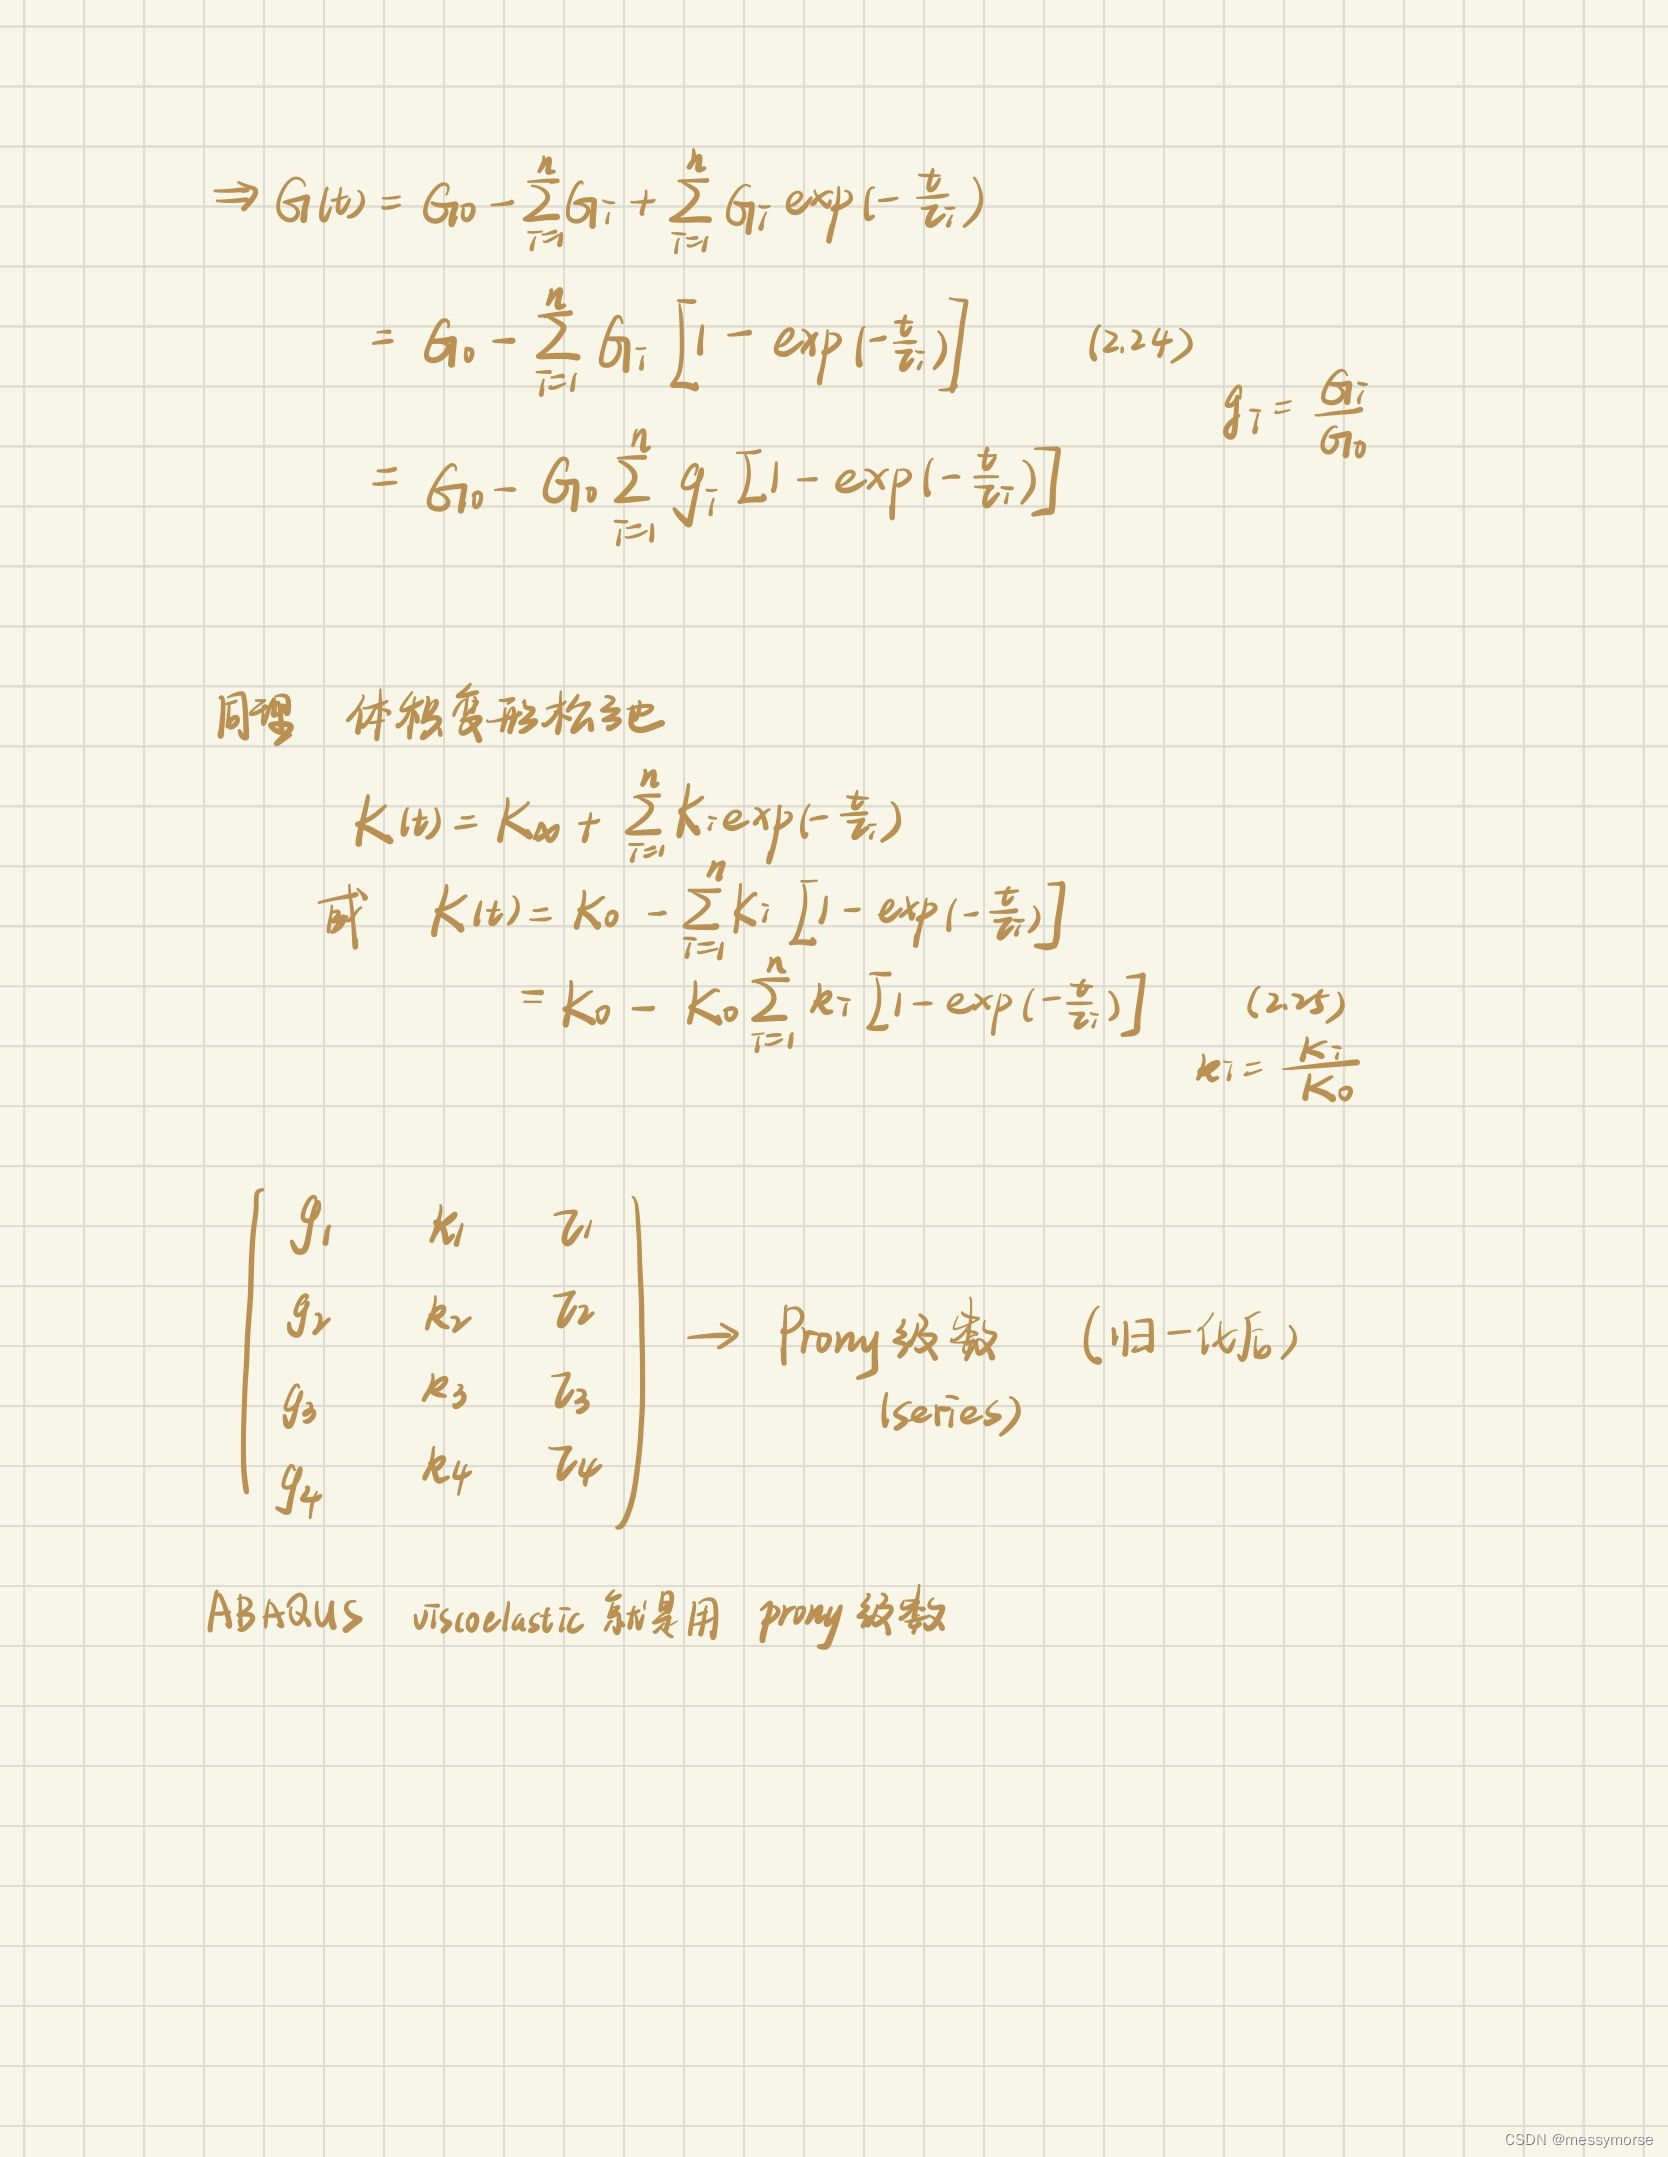 ⇒ G(t) = G₀ - ∑ᵢ₌₁ⁿ Gᵢ + ∑ᵢ₌₁ⁿ Gᵢ exp(-t/τᵢ)
= G₀ - ∑ᵢ₌₁ⁿ Gᵢ [1 - exp(-t/τᵢ)] (2.24)
gᵢ = Gᵢ/G₀
= G₀ - G₀ ∑ᵢ₌₁ⁿ gᵢ [1 - exp(-t/τᵢ)]
同理 体积变形松弛
K(t) = K∞ + ∑ᵢ₌₁ⁿ Kᵢ exp(-t/τᵢ)
或 K(t) = K₀ - ∑ᵢ₌₁ⁿ Kᵢ [1 - exp(-t/τᵢ)]
= K₀ - K₀ ∑ᵢ₌₁ⁿ kᵢ [1 - exp(-t/τᵢ)] (2.25)
kᵢ = Kᵢ/K₀
g₁ k₁ τ₁
g₂ k₂ τ₂
→ Prony级数 (归一化后)
g₃ k₃ τ₃
(series)
g₄ k₄ τ₄
ABAQUS viscoelastic 就是用 prony 级数
CSDN @messymorse